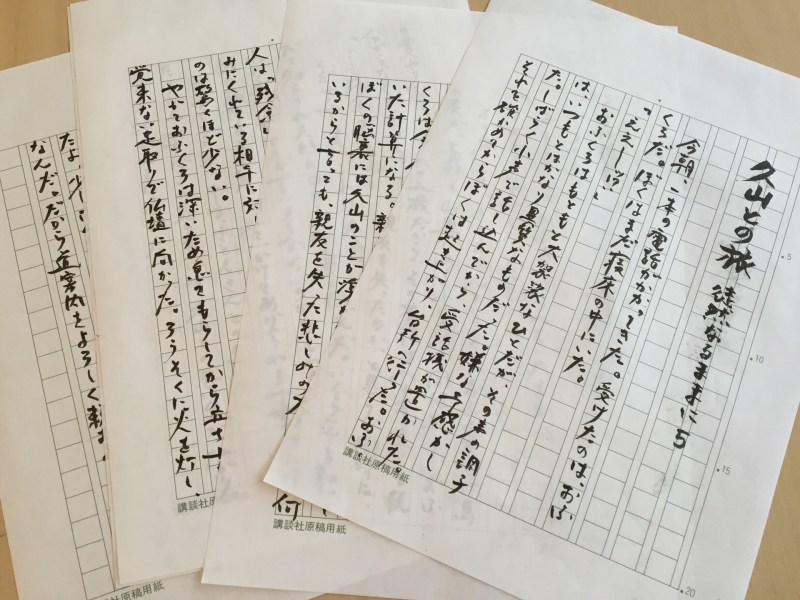 久山との旅 徒然なるままに 5
今朝、一本の電話がかかってきた。受けたのは、おふ
くろだ。ぼくはまだ寝床の中にいた。
「ええーっ!?」
おふくろはもともと大袈裟なひとだが、その声の調子
は、いつもとはかなり異質なものだった。嫌な予感がし
た。しばらく小声で話し込んでから、受話機が置かれた。
それを確かめてからぼくは起き上がり、台所へ行った。おふ
くろは今
いた計算になる。
ぼくの脳裏には久山のことが浮か
いるからと言っても、親友を失った悲しみの
何
人は「残念
みにくれている相手に
のは驚くほど少ない。
やがておふくろは深いため息をもらしてから立ち上
覚束ない足取りで仏壇に向かった。ろうそくに火を灯し、
たよ。
なんだ。だから道案内をよろしく頼む。
5
10
15
20
講談社原稿用紙
講談社原稿用紙
講談社原稿用紙
講談社原稿用紙